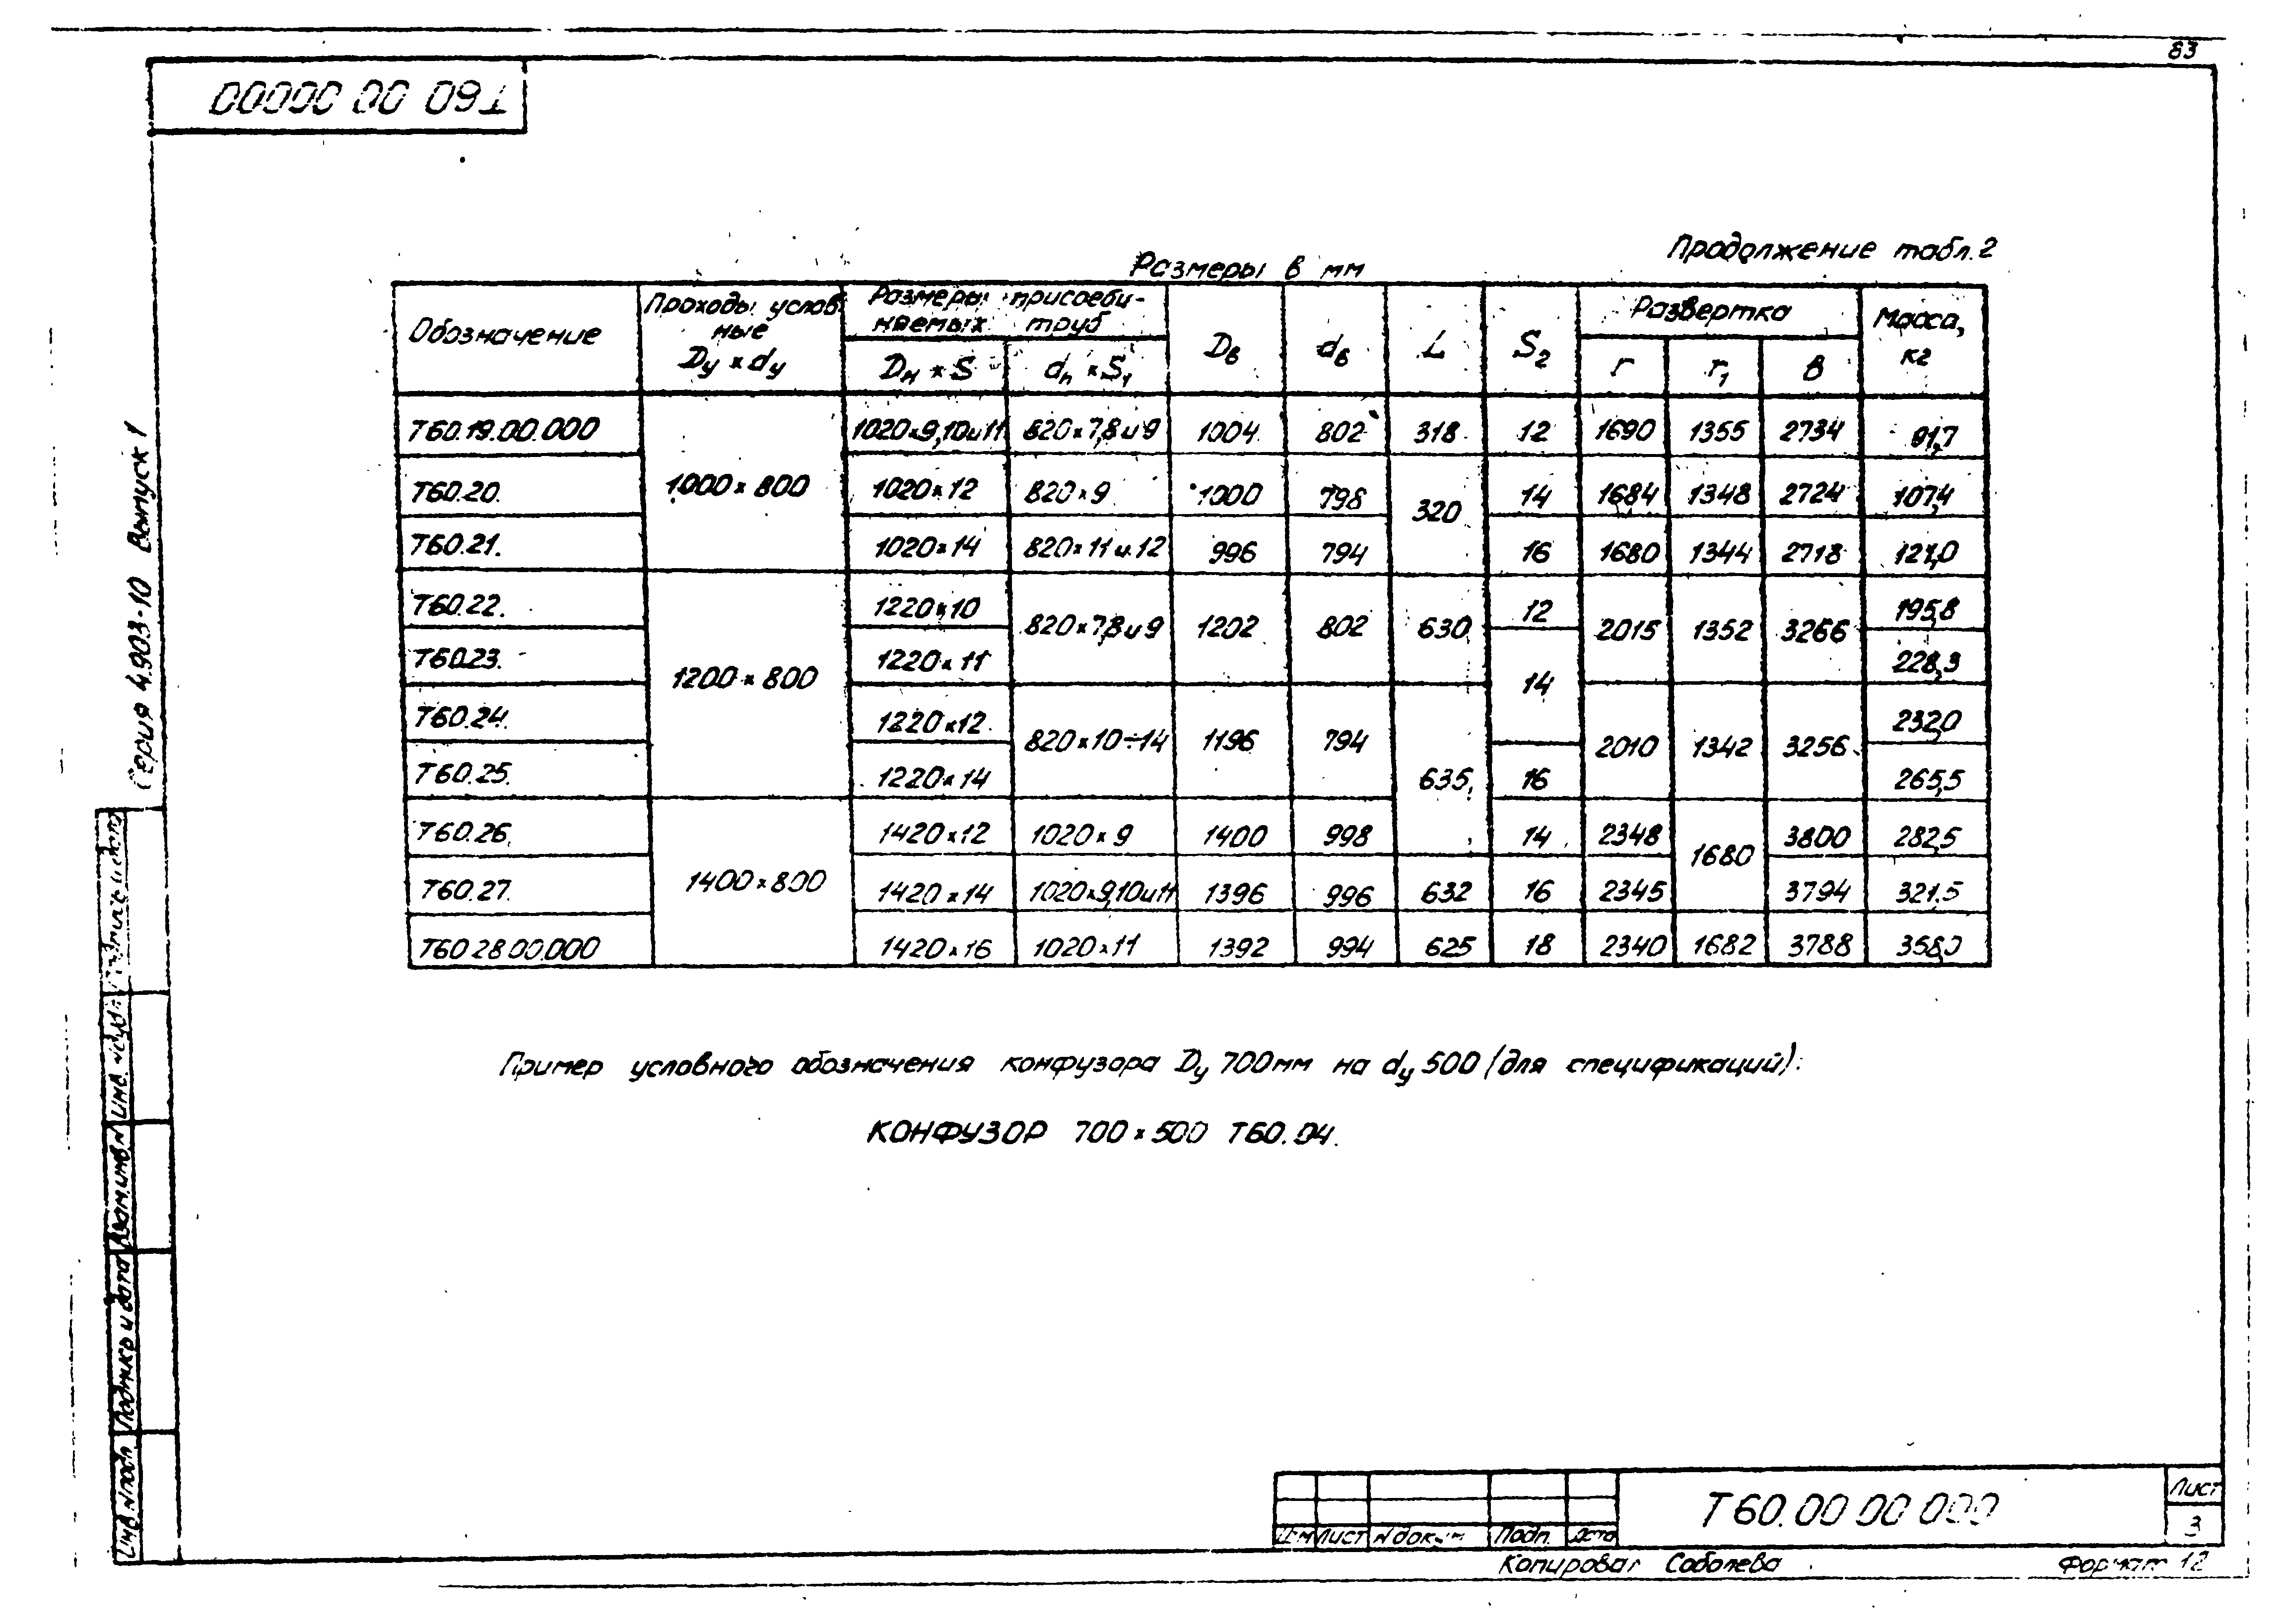 83
Т60 00 00000
Серия 4.903-10 Выпуск 1
Продолжение табл.2
Размеры в мм
Обозначение | Проходы условные Dу × dу | Размеры присоединяемых труб | Dв | dв | L | S2 | Развертка | Масса, кг
Dн × S | dн × S1 | r | r1 | в
Т60.19.00.000 | 1000 × 800 | 1020×9,10и11 | 820×7,8и9 | 1004 | 802 | 318 | 12 | 1690 | 1355 | 2734 | 91,7
Т60.20. | 1020×12 | 820×9 | 1000 | 798 | 320 | 14 | 1684 | 1348 | 2724 | 107,4
Т60.21. | 1020×14 | 820×11и12 | 996 | 794 | 16 | 1680 | 1344 | 2718 | 121,0
Т60.22. | 1200 × 800 | 1220×10 | 820×7,8и9 | 1202 | 802 | 630 | 12 | 2015 | 1352 | 3266 | 195,8
Т60.23. | 1220×11 | 14 | 228,3
Т60.24. | 1220×12 | 820×10÷14 | 1196 | 794 | 635 | 2010 | 1342 | 3256 | 232,0
Т60.25. | 1220×14 | 16 | 265,5
Т60.26. | 1400×800 | 1420×12 | 1020×9 | 1400 | 998 | 14 | 2348 | 1680 | 3800 | 282,5
Т60.27. | 1420×14 | 1020×9,10и11 | 1396 | 996 | 632 | 16 | 2345 | 3794 | 321,5
Т60 28.00.000 | 1420×16 | 1020×11 | 1392 | 994 | 625 | 18 | 2340 | 1682 | 3788 | 358,0
Пример условного обозначения конфузора Dу 700мм на dу 500 (для спецификаций):
КОНФУЗОР 700×500 Т60.04.
Инв.№подл
Подпись и дата
Взам.инв.№
Инв.№дубл.
Подпись и дата
Изм
Лист
№ докум
Подп.
Дата
Т60.00 00 000
Лист
3
Копировал Соболева
Формат 12